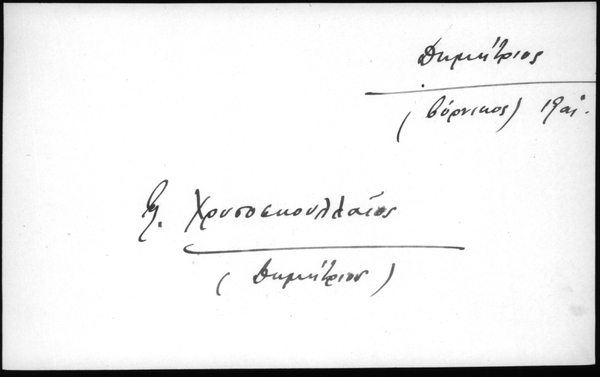 Δημήτριος
(βόρνικος) 19αι.
Χρυσοσκουλλαῖος
(Δημήτριος)